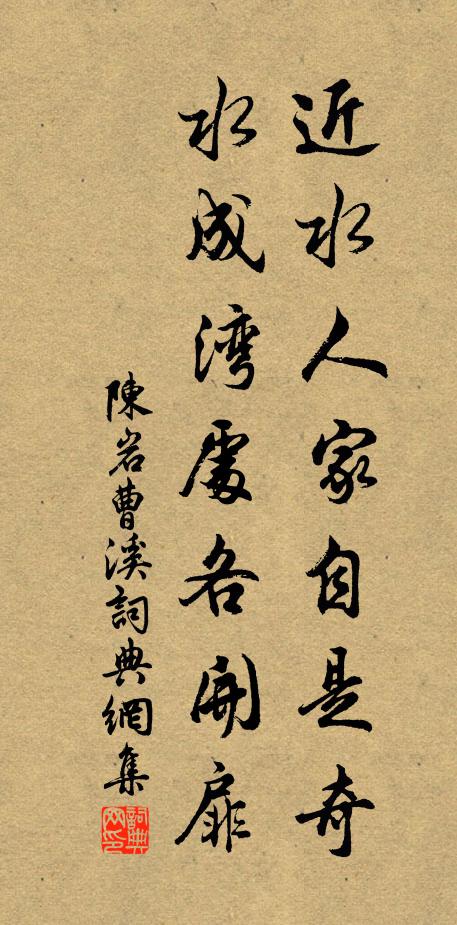 近水人家自是奇
水成湾處各開扉
陳岩曹溪詞典網集
詞典网印